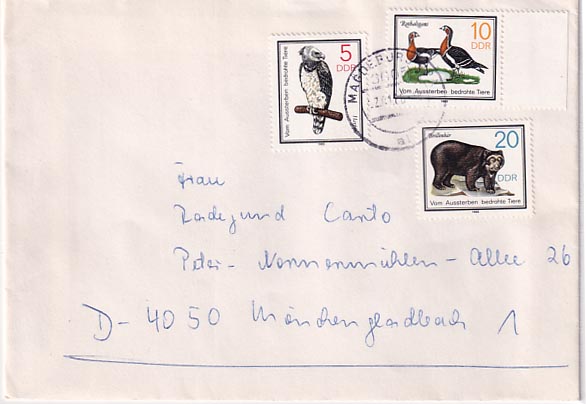 5
DDR
Vom Aussterben bedrohte Tiere
Rothalsgans
10
DDR
Vom Aussterben bedrohte Tiere
MAGDEBURG
Brillenbär
20
DDR
Vom Aussterben bedrohte Tiere
Frau
Radegund Canto
Peter-Nonnenmühlen-Allee 26
D-4050 Mönchengladbach 1